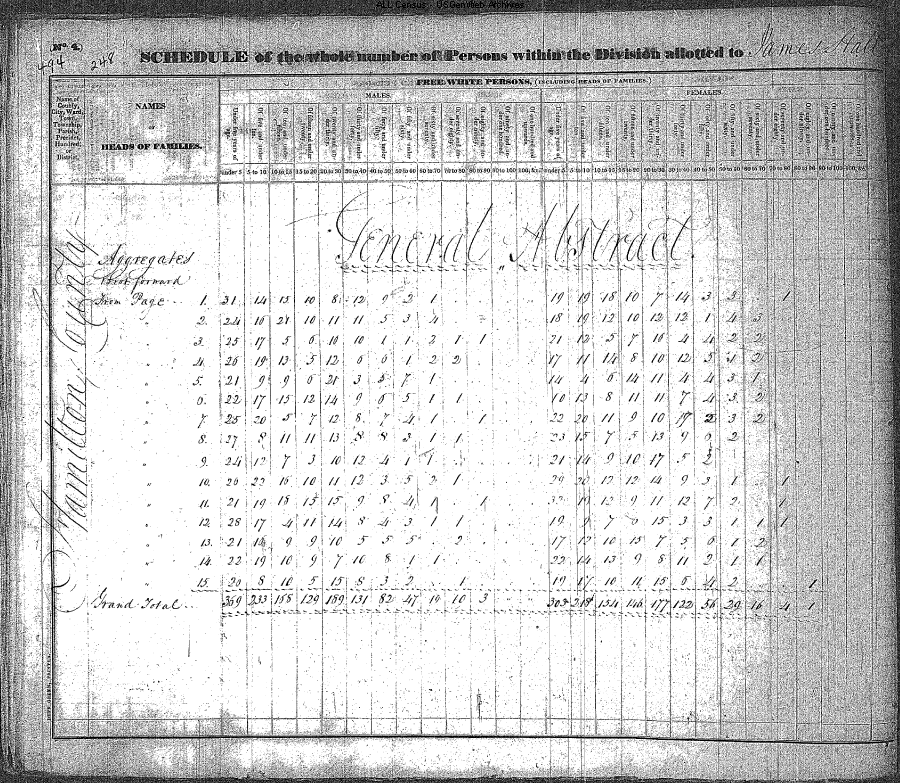 ALL Census USGenWeb Archives
(No. 4.)
494 248
SCHEDULE of the whole number of Persons within the Division allotted to James Hall
FREE WHITE PERSONS, (INCLUDING HEADS OF FAMILIES.)
MALES. FEMALES.
Name of County, City, Ward, Town, Township, Parish, Precinct, Hundred, or District.
NAMES
OF
HEADS OF FAMILIES.
under 5 5 to 10 10 to 15 15 to 20 20 to 30 30 to 40 40 to 50 50 to 60 60 to 70 70 to 80 80 to 90 90 to 100 100, &c. under 5 5 to 10 10 to 15 15 to 20 20 to 30 30 to 40 40 to 50 50 to 60 60 to 70 70 to 80 80 to 90 90 to 100 100, &c.
Hamilton County
General Abstract.
Aggregates
Brot forward
From Page 1. 31 14 15 10 8 12 9 2 1 19 19 18 10 7 14 3 3 1
" 2. 24 16 21 10 11 11 5 3 4 18 19 12 10 12 12 1 4 3
" 3. 25 17 5 6 10 10 1 1 2 1 1 21 12 5 7 16 4 4 2 2
" 4. 26 19 13 5 12 6 6 1 2 2 17 11 14 8 10 12 5 1 2
" 5. 21 9 9 6 21 3 5 7 1 14 4 6 14 11 4 4 3 1
" 6. 22 17 15 12 14 9 6 5 1 1 10 13 8 11 11 7 4 3 2
" 7. 25 20 5 7 12 8 7 4 1 1 22 20 11 9 10 19 2 3 2
" 8. 27 8 11 11 13 8 8 3 1 1 23 15 7 5 13 9 6 2
" 9. 24 12 7 3 10 12 4 1 1 21 14 9 10 17 5 2
" 10. 26 22 16 10 11 12 3 5 2 1 29 20 12 12 14 9 3 1 1
" 11. 21 19 18 15 15 9 8 4 1 1 32 19 12 9 11 12 7 2 1
" 12. 28 17 4 11 14 8 4 3 1 1 19 9 7 6 15 3 3 1 1 1
" 13. 21 14 9 9 10 5 5 5 2 17 12 10 15 7 5 6 1 2
" 14. 22 19 10 9 7 10 8 1 1 22 14 13 9 8 11 2 1 1
" 15. 20 8 10 5 15 8 3 2 1 19 17 10 11 15 6 4 2 1
Grand Total 359 233 158 129 189 131 82 47 19 10 3 303 218 154 146 177 122 56 29 16 4 1